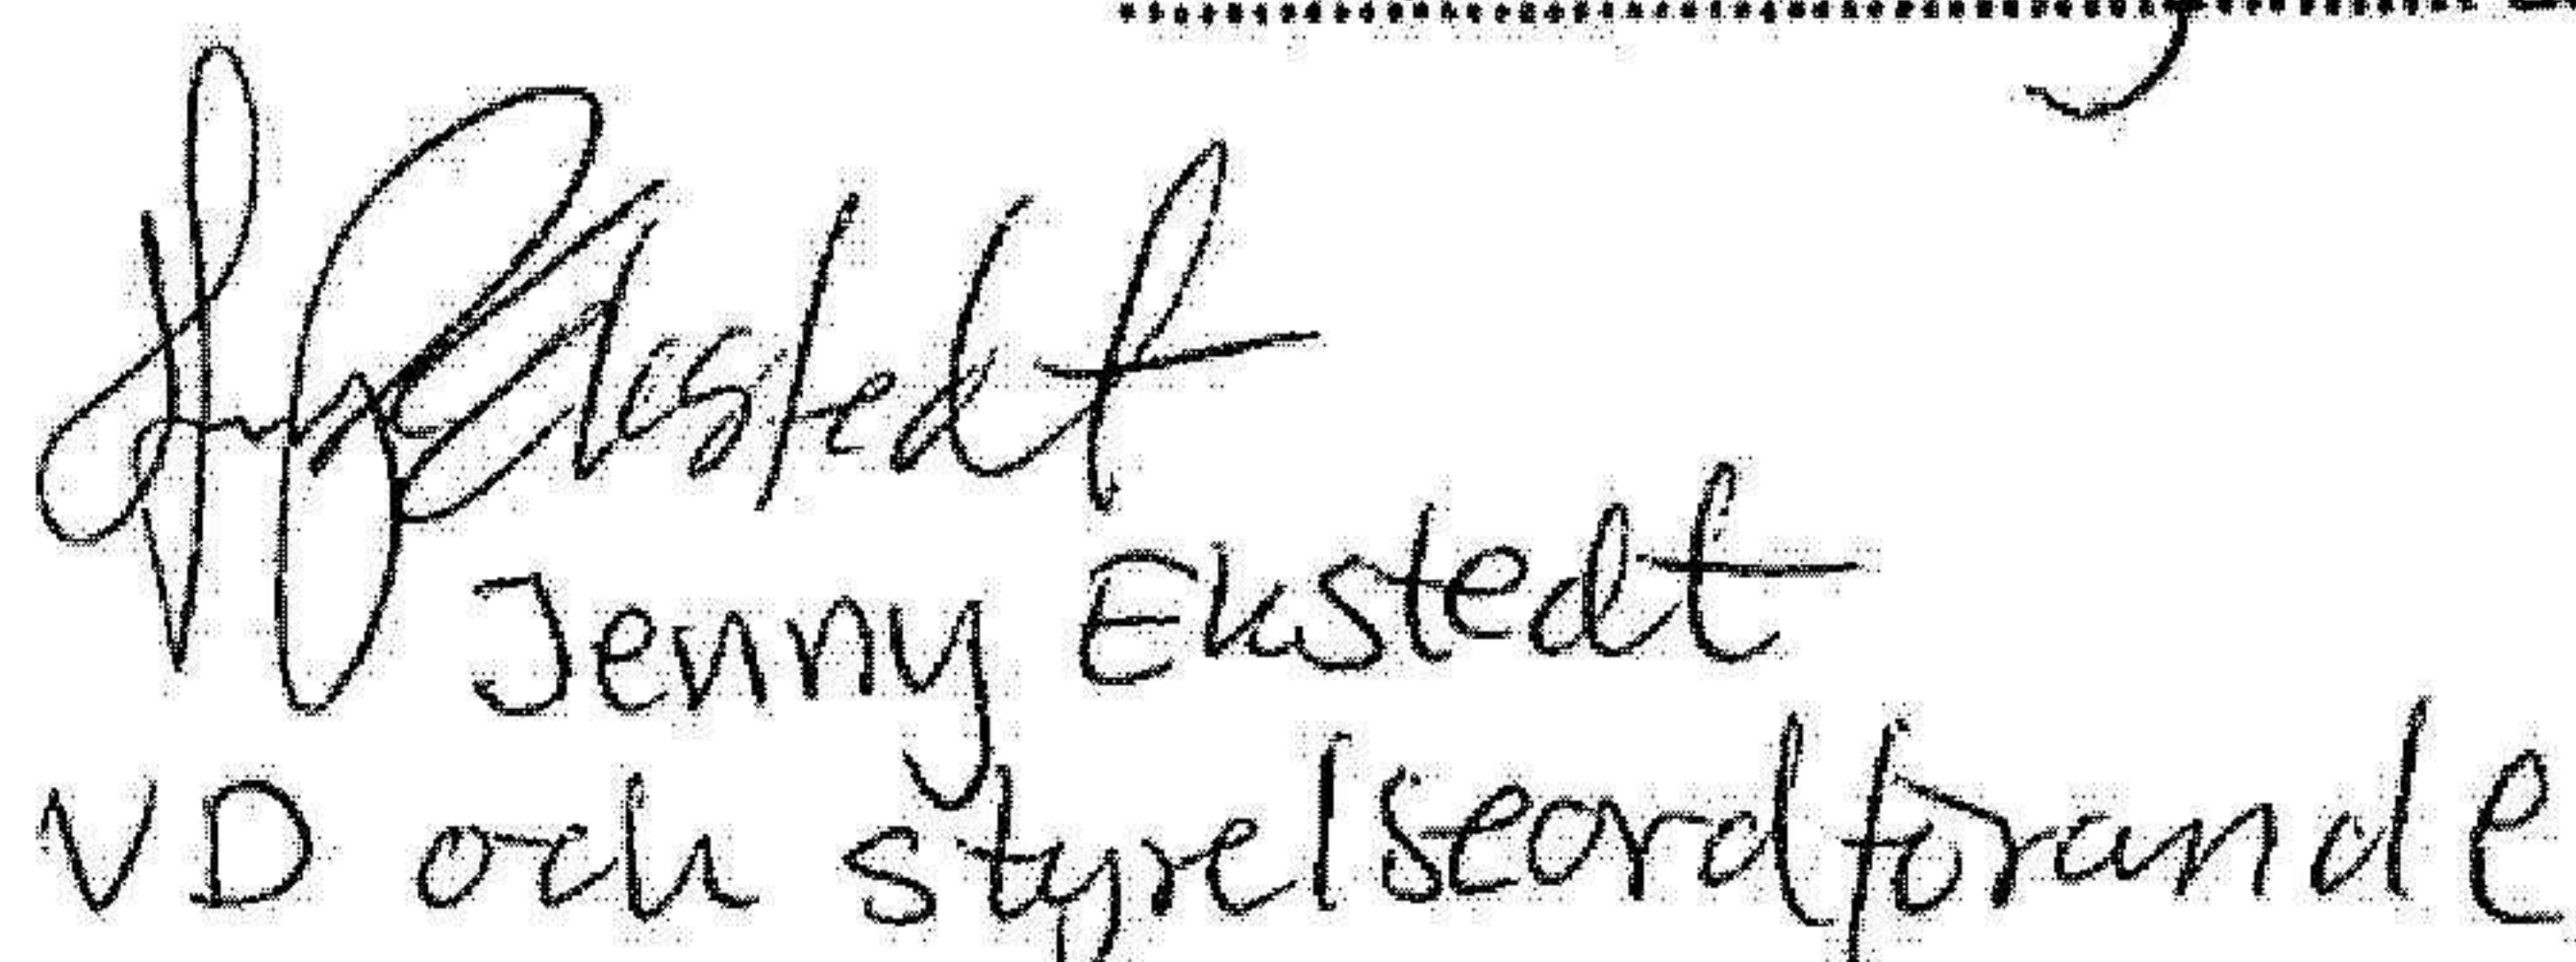 Jenny Ekstedt
Jenny Ekstedt
VD och styrelseordförande